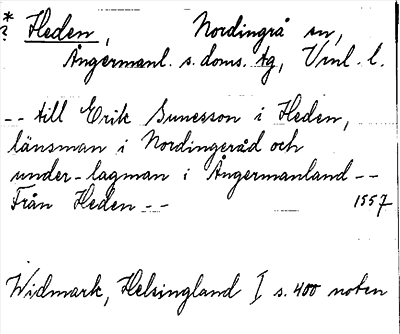 * ? Heden, Nordingrå sn,
Ångermanl. s. doms. tg, Vnl. l.
-- till Erik Sunesson i Heden,
länsman i Nordingeråd och
under-lagman i Ångermanland --
Från Heden -- 1557
Widmark, Helsingland I s. 400 noten